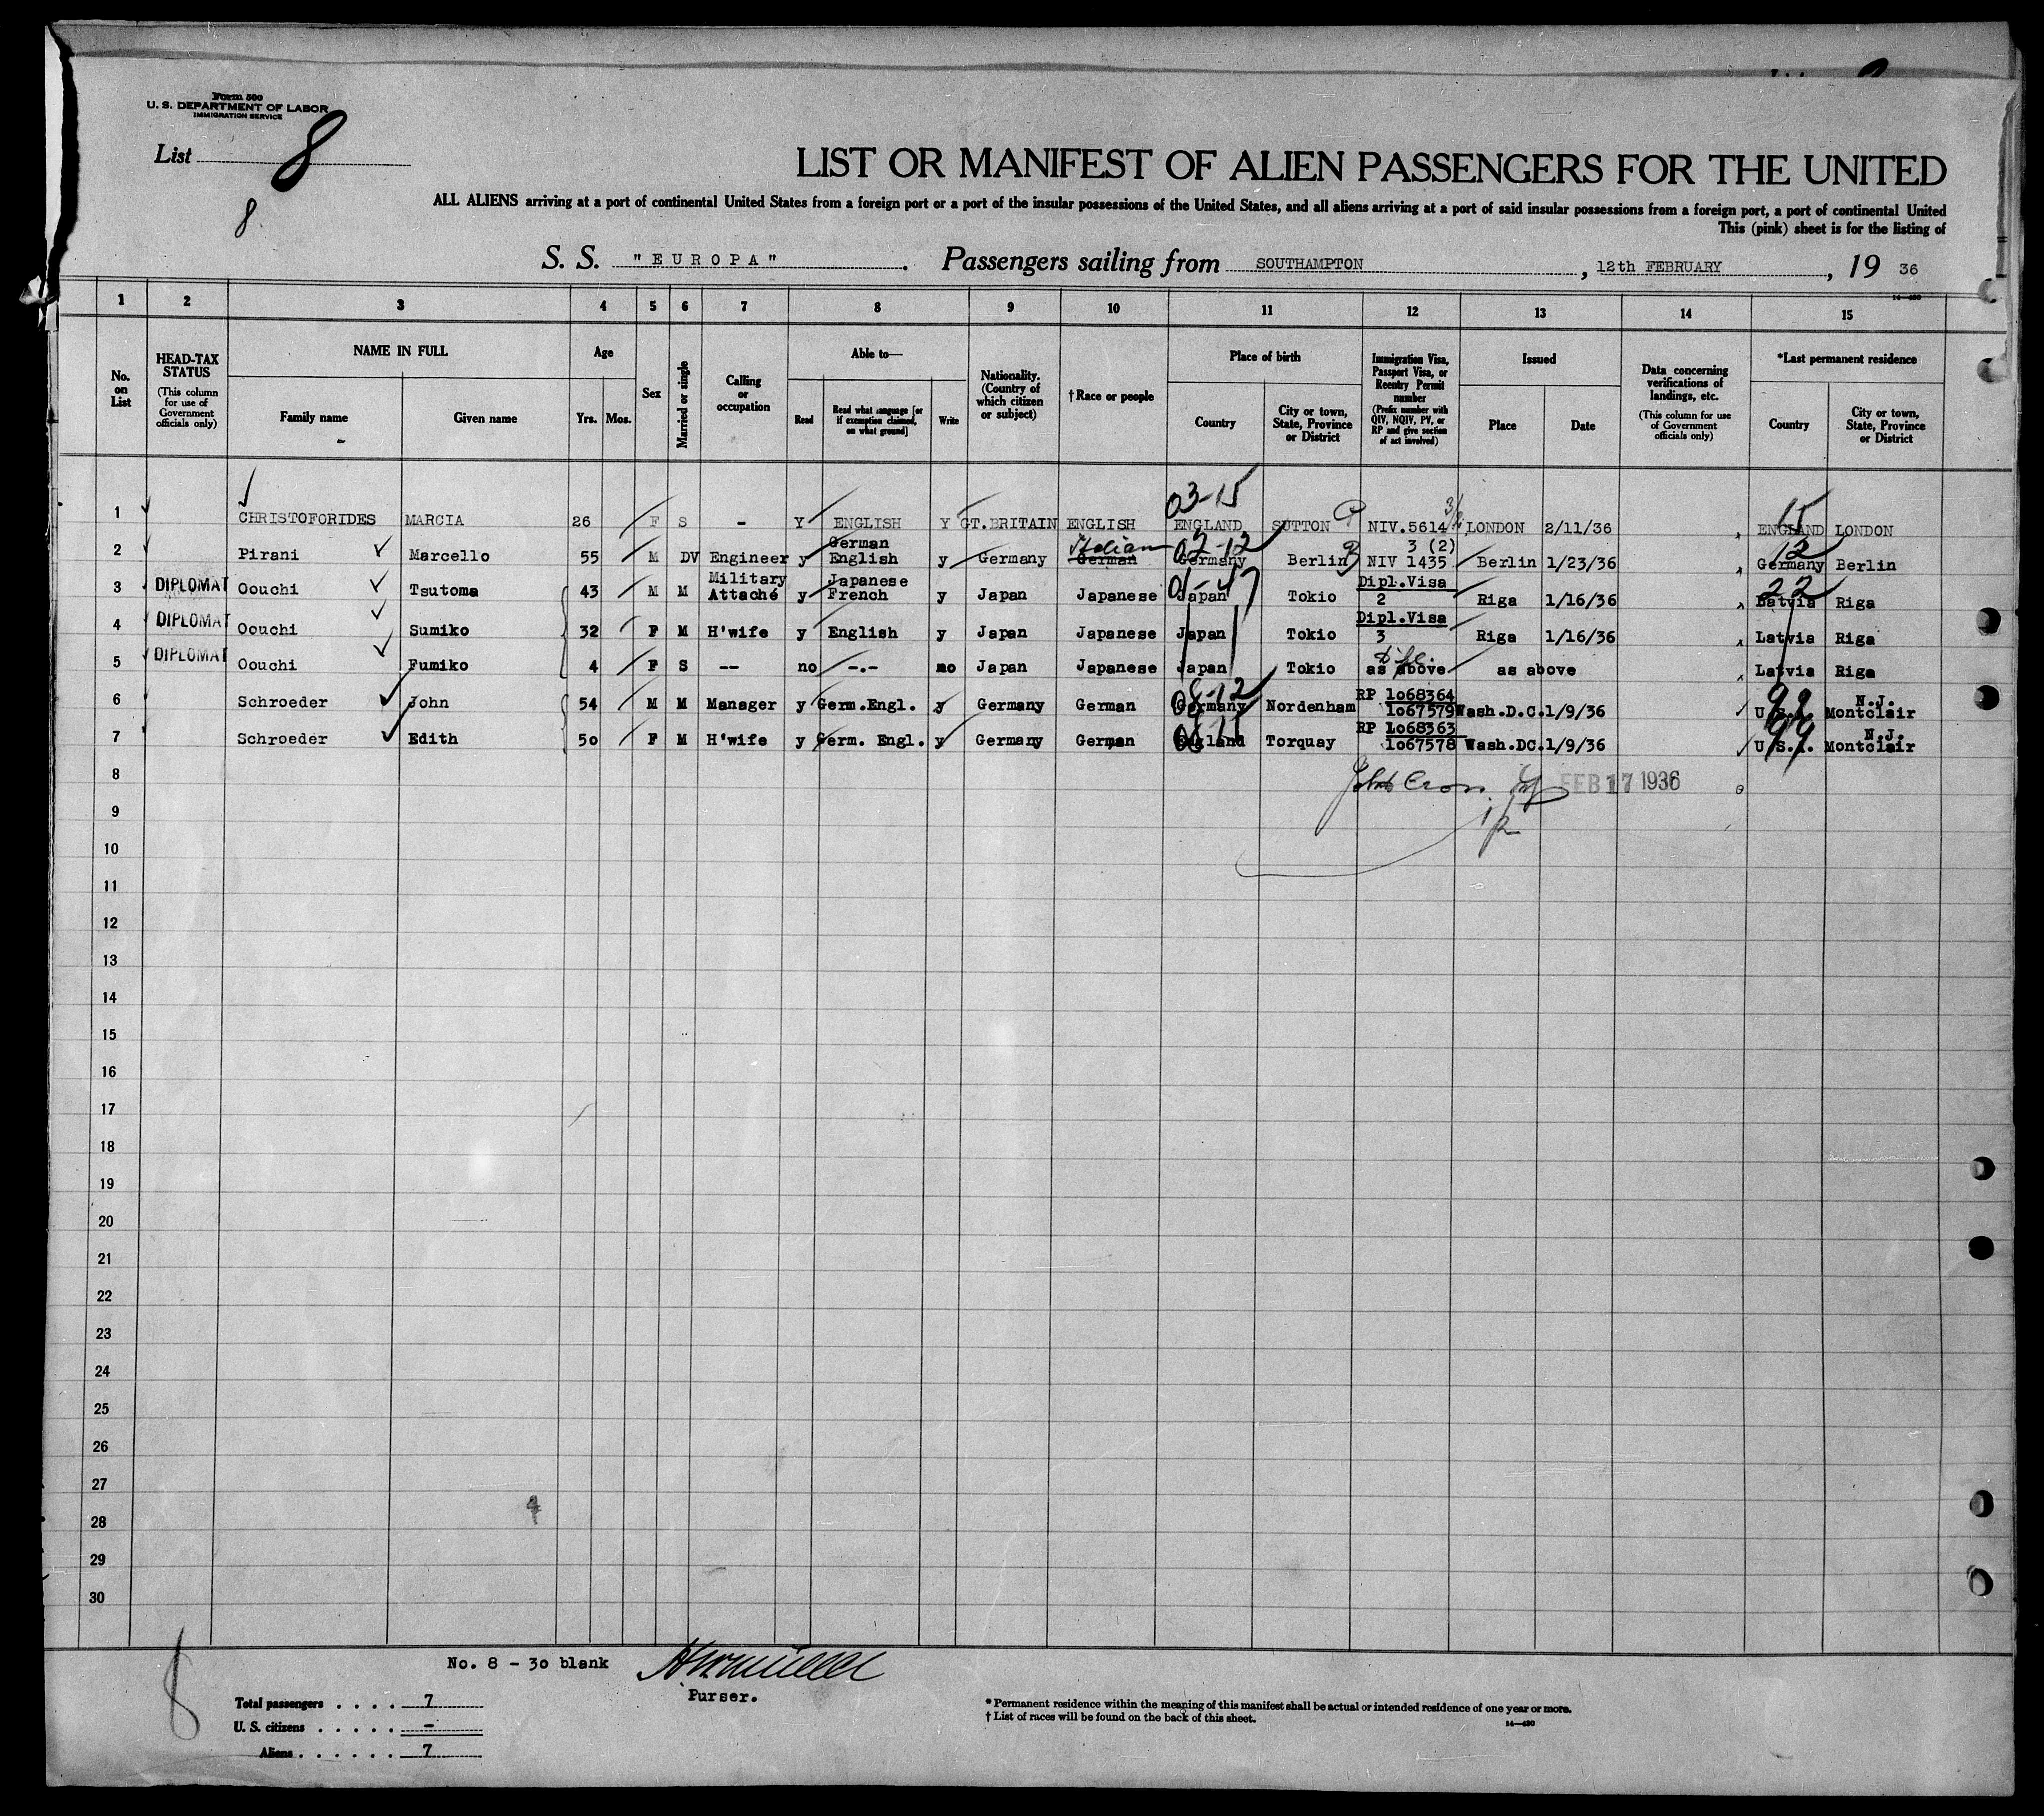 Form 500
U. S. DEPARTMENT OF LABOR
IMMIGRATION SERVICE
List 8
8
LIST OR MANIFEST OF ALIEN PASSENGERS FOR THE UNITED
ALL ALIENS arriving at a port of continental United States from a foreign port or a port of the insular possessions of the United States, and all aliens arriving at a port of said insular possessions from a foreign port, a port of continental United
This (pink) sheet is for the listing of
S. S. "EUROPA". Passengers sailing from SOUTHAMPTON, 12th FEBRUARY, 19 36
1 2 3 4 5 6 7 8 9 10 11 12 13 14 15
No. on List
HEAD-TAX STATUS (This column for use of Government officials only)
NAME IN FULL
Family name
Given name
Age
Yrs. Mos.
Sex
Married or single
Calling or occupation
Able to—
Read
Read what language [or if exemption claimed, on what ground]
Write
Nationality. (Country of which citizen or subject)
†Race or people
Place of birth
Country
City or town, State, Province or District
Immigration Visa, Passport Visa, or Reentry Permit number (Prefix number with QIV, NQIV, PV, or RP and give section of act involved)
Issued
Place
Date
Data concerning verifications of landings, etc. (This column for use of Government officials only)
*Last permanent residence
Country
City or town, State, Province or District
03-15 15
1 CHRISTOFORIDES MARCIA 26 F S - Y ENGLISH Y GT.BRITAIN ENGLISH ENGLAND SUTTON NIV.5614 LONDON 2/11/36 ENGLAND LONDON
German Italian 02-12 3 (2) 12
2 Pirani Marcello 55 M DV Engineer y English y Germany German Germany Berlin NIV 1435 Berlin 1/23/36 Germany Berlin
Military Japanese Dipl.Visa 22
3 DIPLOMAT Oouchi Tsutoma 43 M M Attaché y French y Japan Japanese Japan Tokio 2 Riga 1/16/36 Latvia Riga
Dipl.Visa
4 DIPLOMAT Oouchi Sumiko 32 F M H'wife y English y Japan Japanese Japan Tokio 3 Riga 1/16/36 Latvia Riga
5 DIPLOMAT Oouchi Fumiko 4 F S -- no -.- no Japan Japanese Japan Tokio as above as above Latvia Riga
08-12 RP 1068364 99 N.J.
6 Schroeder John 54 M M Manager y Germ.Engl. y Germany German Germany Nordenham 1067579 Wash.D.C. 1/9/36 U.S.A. Montclair
RP 1068363 99 N.J.
7 Schroeder Edith 50 F M H'wife y Germ. Engl. y Germany German England Torquay 1067578 Wash.DC. 1/9/36 U.S.A. Montclair
8 FEB 17 1936
9
10
11
12
13
14
15
16
17
18
19
20
21
22
23
24
25
26
27
28
29
30
4
8
No. 8 - 30 blank
Purser.
Total passengers . . . . 7
U. S. citizens . . . . . -
Aliens . . . . . . 7
* Permanent residence within the meaning of this manifest shall be actual or intended residence of one year or more.
† List of races will be found on the back of this sheet.
14—430